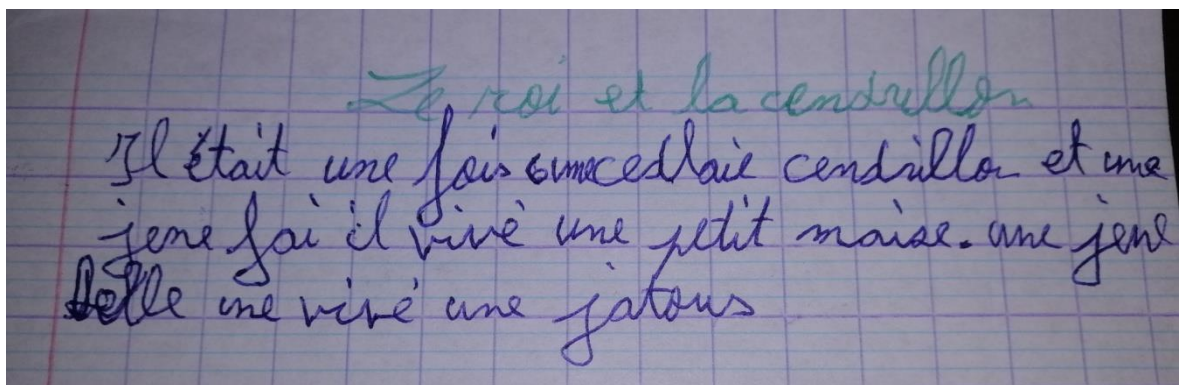 Le roi et la cendrillon
Il était une fois cendrillon et une
jene foi il vivé une petit maise. une jene
une vivé une jatous